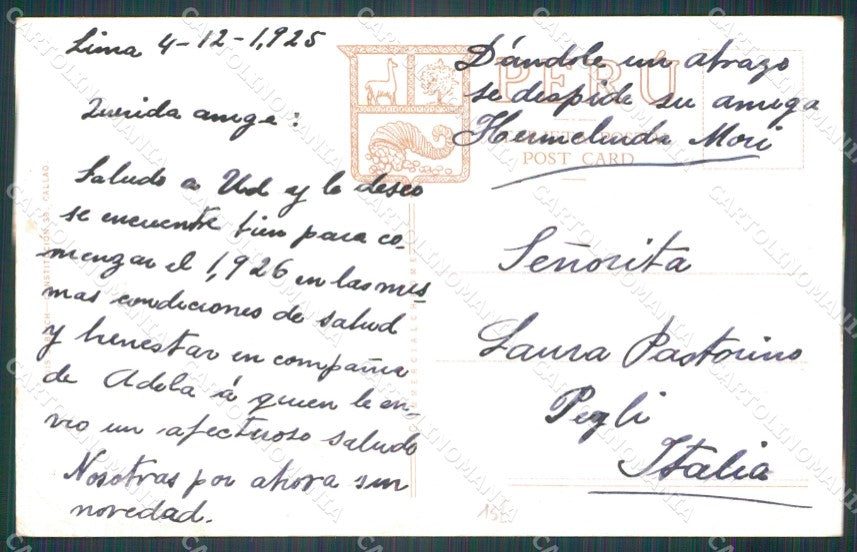 Lima 4-12-1,925
Querida amiga:
Saludo a Ud y le deseo
se encuentre bien para co-
menzar el 1,926 en las mis
mas condiciones de salud
y bienestar en compañia
de Adela á quien le en-
vio un afectuoso saludo
Nosotras por ahora sin
novedad.
Dándole un abrazo
se despide su amiga
Hermelinda Mori
PERÚ
POST CARD
Señorita
Laura Pastorino
Pegli
Italia